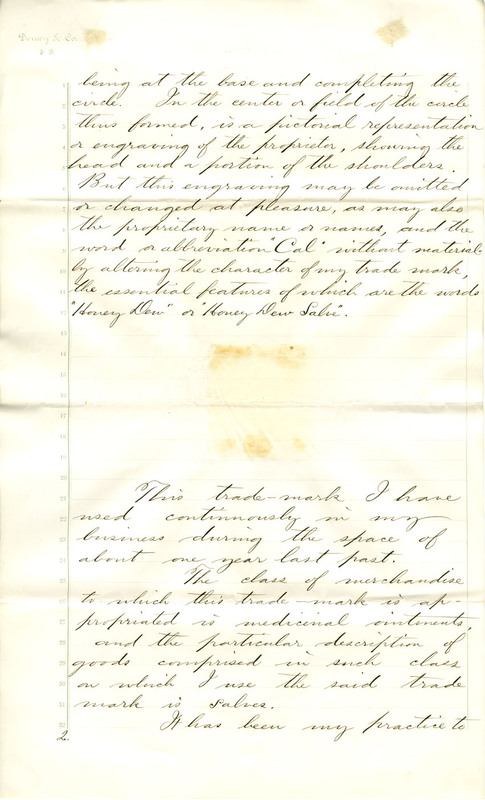 Dewey & Co.
being at the base and completing the
circle. In the center or field of the circle
thus formed, is a pictorial representation
or engraving of the proprietor, showing the
head and a portion of the shoulders.
But this engraving may be omitted
or changed at pleasure, as may also
the proprietary name or names, and the
word or abbreviation "Cal" without material-
ly altering the character of my trade mark,
the essential features of which are the words
"Honey Dew" or "Honey Dew Salve".
This trade-mark I have
used continuously in my
business during the space of
about one year last past.
The class of merchandise
to which this trade-mark is ap-
propriated is medicinal ointments,
and the particular description of
goods comprised in such class
on which I use the said trade
mark is salves.
It has been my practice to
2.